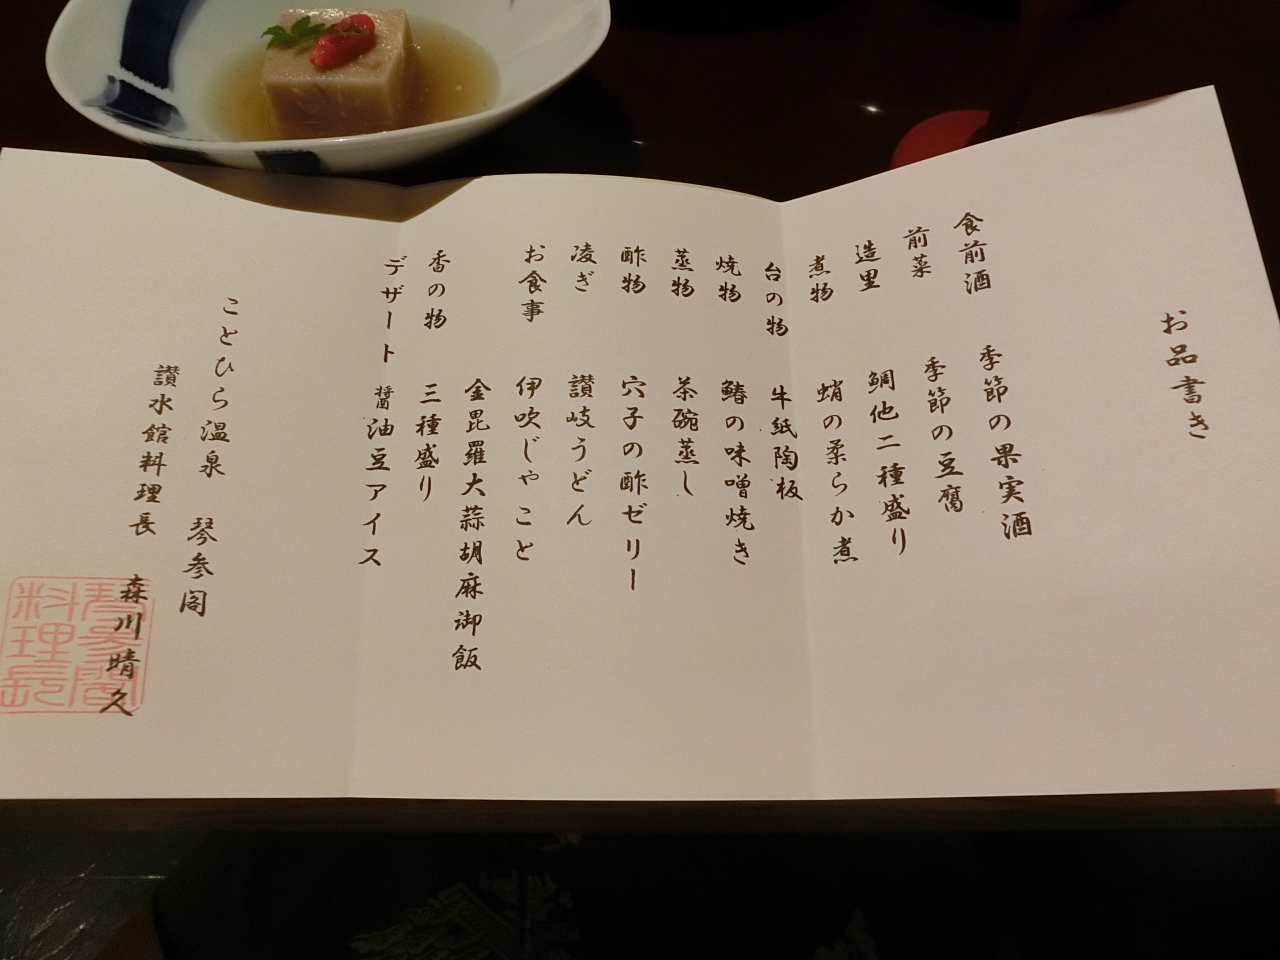 お品書き
食前酒 季節の果実酒
前菜 季節の豆腐
造里 鯛他二種盛り
煮物 蛸の柔らか煮
台の物 牛紙陶板
焼物 鰆の味噌焼き
蒸物 茶碗蒸し
酢物 穴子の酢ゼリー
凌ぎ 讃岐うどん
お食事 伊吹じゃこと
金毘羅大蒜胡麻御飯
香の物 三種盛り
デザート 醤油豆アイス
ことひら温泉 琴参閣
讃水館料理長 森川晴久
琴参閣
料理長